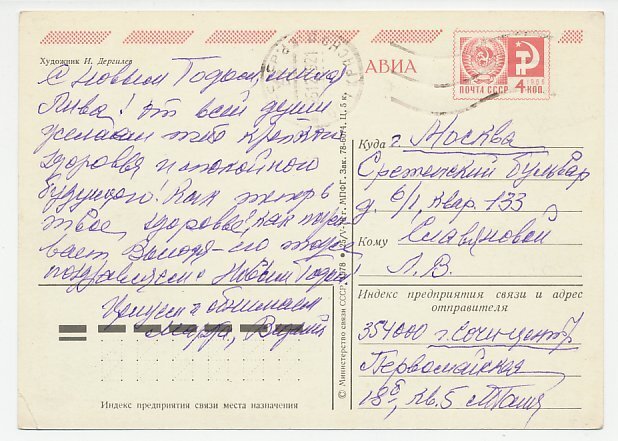 Художник И. Дергилев
АВИА
ПОЧТА СССР 4 КОП.
С Новым Годом, милая
Лива! От всей души
желаем тебе крепкого
здоровья и спокойного
будущего! Как теперь
твое здоровье, как пожи
вает Володя – его тоже
поздравляем с Новым Годом!
Целуем и обнимаем
Вадим
Куда г. Москва
Сретенский бульвар
д. 6/1, квар. 133
Кому Славяновой
Л. В.
Индекс предприятия связи и адрес
отправителя
354000 г. Сочи-центр
Первомайская
кв. 5
Индекс предприятия связи места назначения
© Министерство связи СССР, 1978 • 25/V-78 г. МПФГ. Зак. 78-6074. Ц. 5 к.